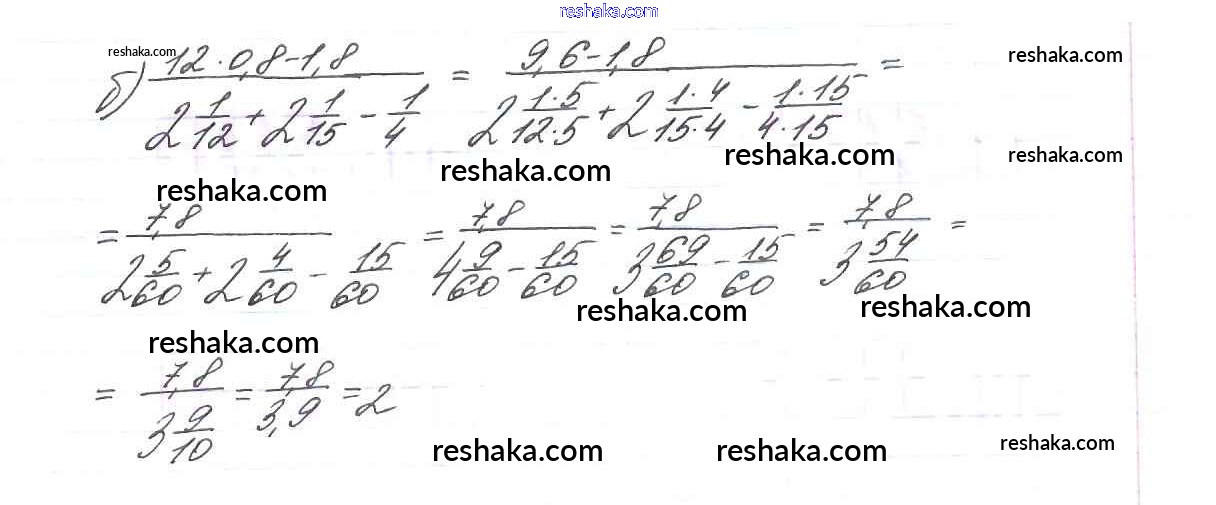 reshaka.com
reshaka.com
reshaka.com
б) (12 · 0,8 - 1,8) / (2 1/12 + 2 1/15 - 1/4) = (9,6 - 1,8) / (2 1·5/12·5 + 2 1·4/15·4 - 1·15/4·15) =
reshaka.com
reshaka.com
reshaka.com
reshaka.com
= 7,8 / (2 5/60 + 2 4/60 - 15/60) = 7,8 / (4 9/60 - 15/60) = 7,8 / (3 69/60 - 15/60) = 7,8 / (3 54/60) =
reshaka.com
reshaka.com
reshaka.com
= 7,8 / (3 9/10) = 7,8 / 3,9 = 2
reshaka.com
reshaka.com
reshaka.com